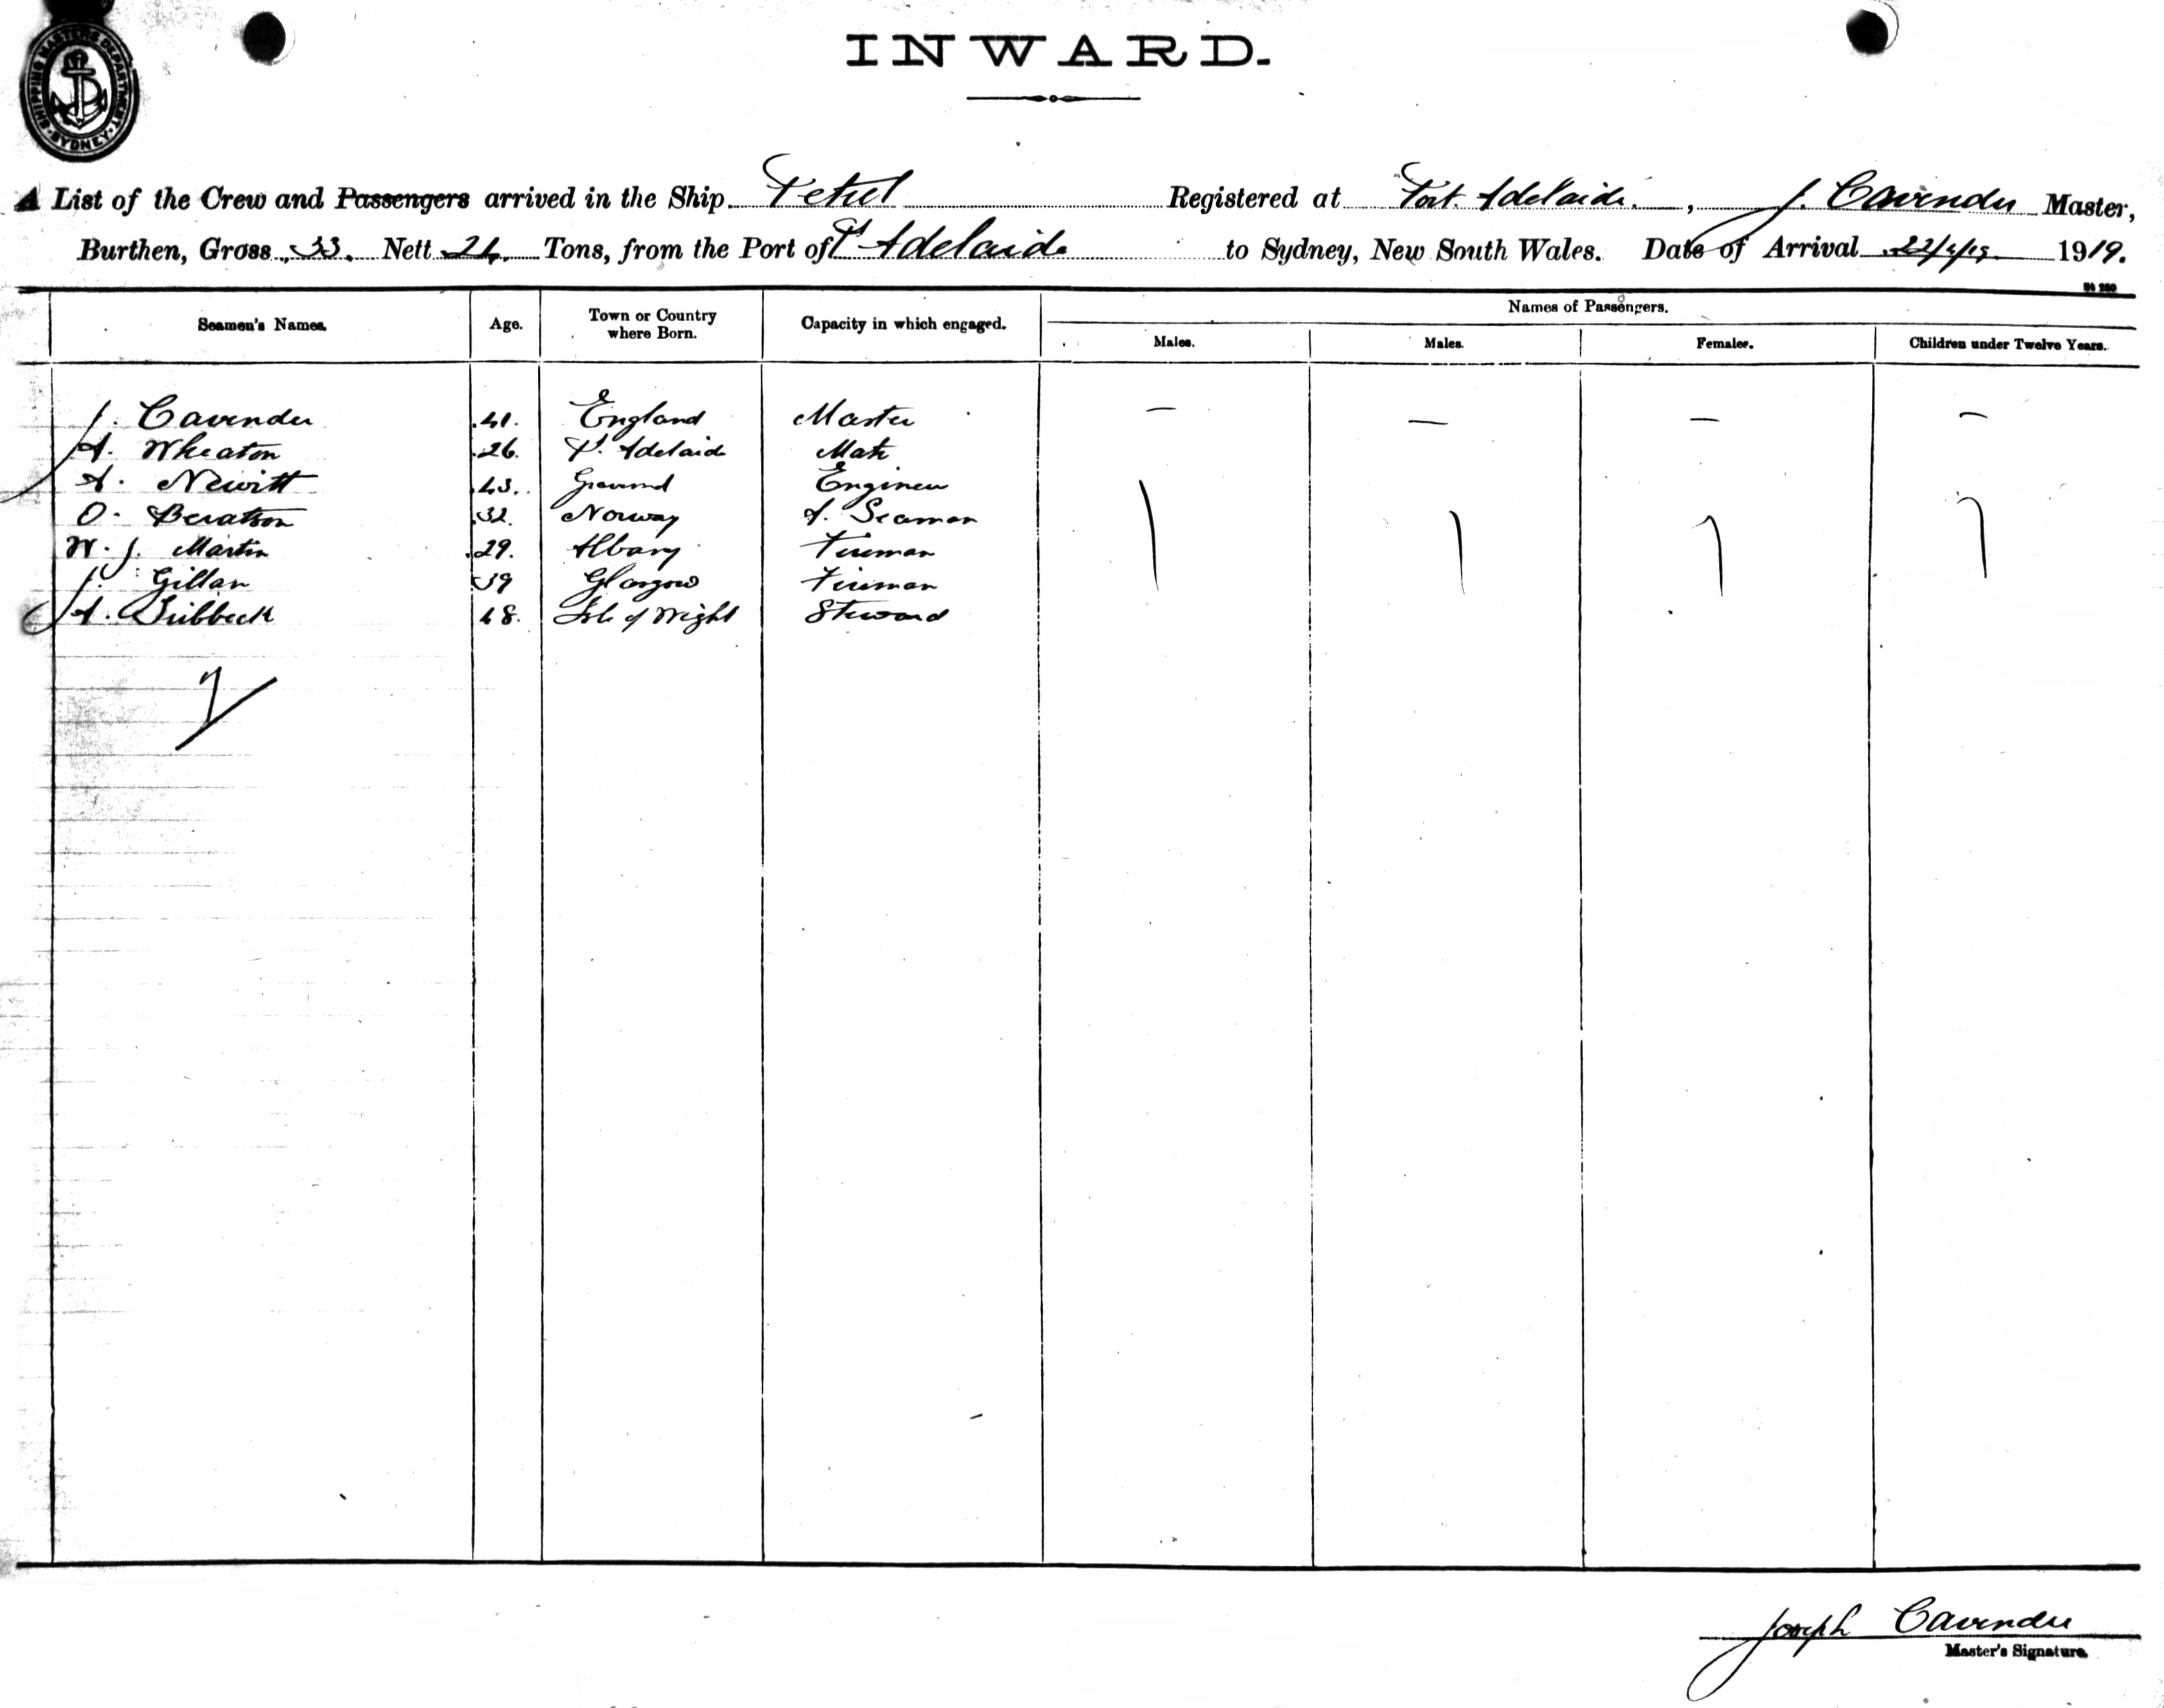 SHIPPING MASTERS DEPARTMENT. SYDNEY
INWARD.
A List of the Crew and Passengers arrived in the Ship Petrel Registered at Port Adelaide. , J. Cavender Master,
Burthen, Gross 33. Nett 24. Tons, from the Port of Pt Adelaide to Sydney, New South Wales. Date of Arrival 22/4/19 1919.
Names of Passengers.
Seamen's Names. Age. Town or Country where Born. Capacity in which engaged. Males. Males. Females. Children under Twelve Years.
J. Cavender 41. England Master — — — —
A. Wheaton 26. Pt. Adelaide Mate
A. Newitt 43. Engineer
O. 32. Norway A. Seaman
W. J. Martin 29. Albany Fireman
J. Gillan 39 Glasgow Fireman
A. 48. Isle of Wight Steward
7
Joseph Cavender
Master's Signature